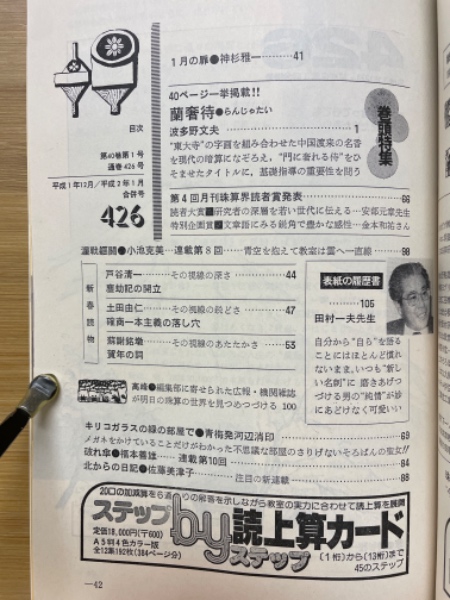 目次
第40巻第1号
通巻426号
平成1年12月/平成2年1月
合併号
426
1月の扉●神杉雅一………41
40ページ一挙掲載!!
蘭奢待●らんじゃたい
波多野文夫………1
"東大寺"の字画を組み合わせた中国渡来の名香
を現代の暗算になぞらえ、"門に奢れる侍"をひ
そませたタイトルに、基礎指導の重要性を問う
巻頭特集
第4回月刊珠算界読者賞発表………66
読者大賞■研究者の深層を若い世代に伝える…安部元章先生
特別企画賞■文章語にみる鋭角で豊かな感性…金本和祐さん
連載第8回……青空を抱えて教室は雲へ一直線……98
新春読物
戸谷清一………その視線の深さ………44
塵劫記の開立
土田由仁………その視線の鋭どさ………47
確商一本主義の落し穴
蘇謝銘墩………その視線のあたたかさ………53
賀年の詞
高峰●編集部に寄せられた広報・機関雑誌
が明日の珠算の世界を見つめつづける 100
表紙の履歴書
………106
田村一夫先生
自分から"自ら"を語る
ことにはほとんど慣れ
ないまま、いつも"新し
い名刺"に磨きあげつ
づける男の"純情"が妙
にあどけなく可愛いい
キリコガラスの緑の部屋で●青梅発河辺消印………69
メガネをかけていることだけがわかった不思議な部屋のさりげないそろばんの聖女!!
破れ傘●橋本善雄……連載第10回………84
北からの日記●佐藤美津子………注目の新連載………88
20口の加減算を6通りの解答を示しながら教室の実力に合わせて読上算を展開
ステップbyステップ読上算カード
定価18,000円(〒600)
A5判4色カラー版
全13集192枚(384ページ分)
(1桁)から(13桁)まで
45のステップ
—42